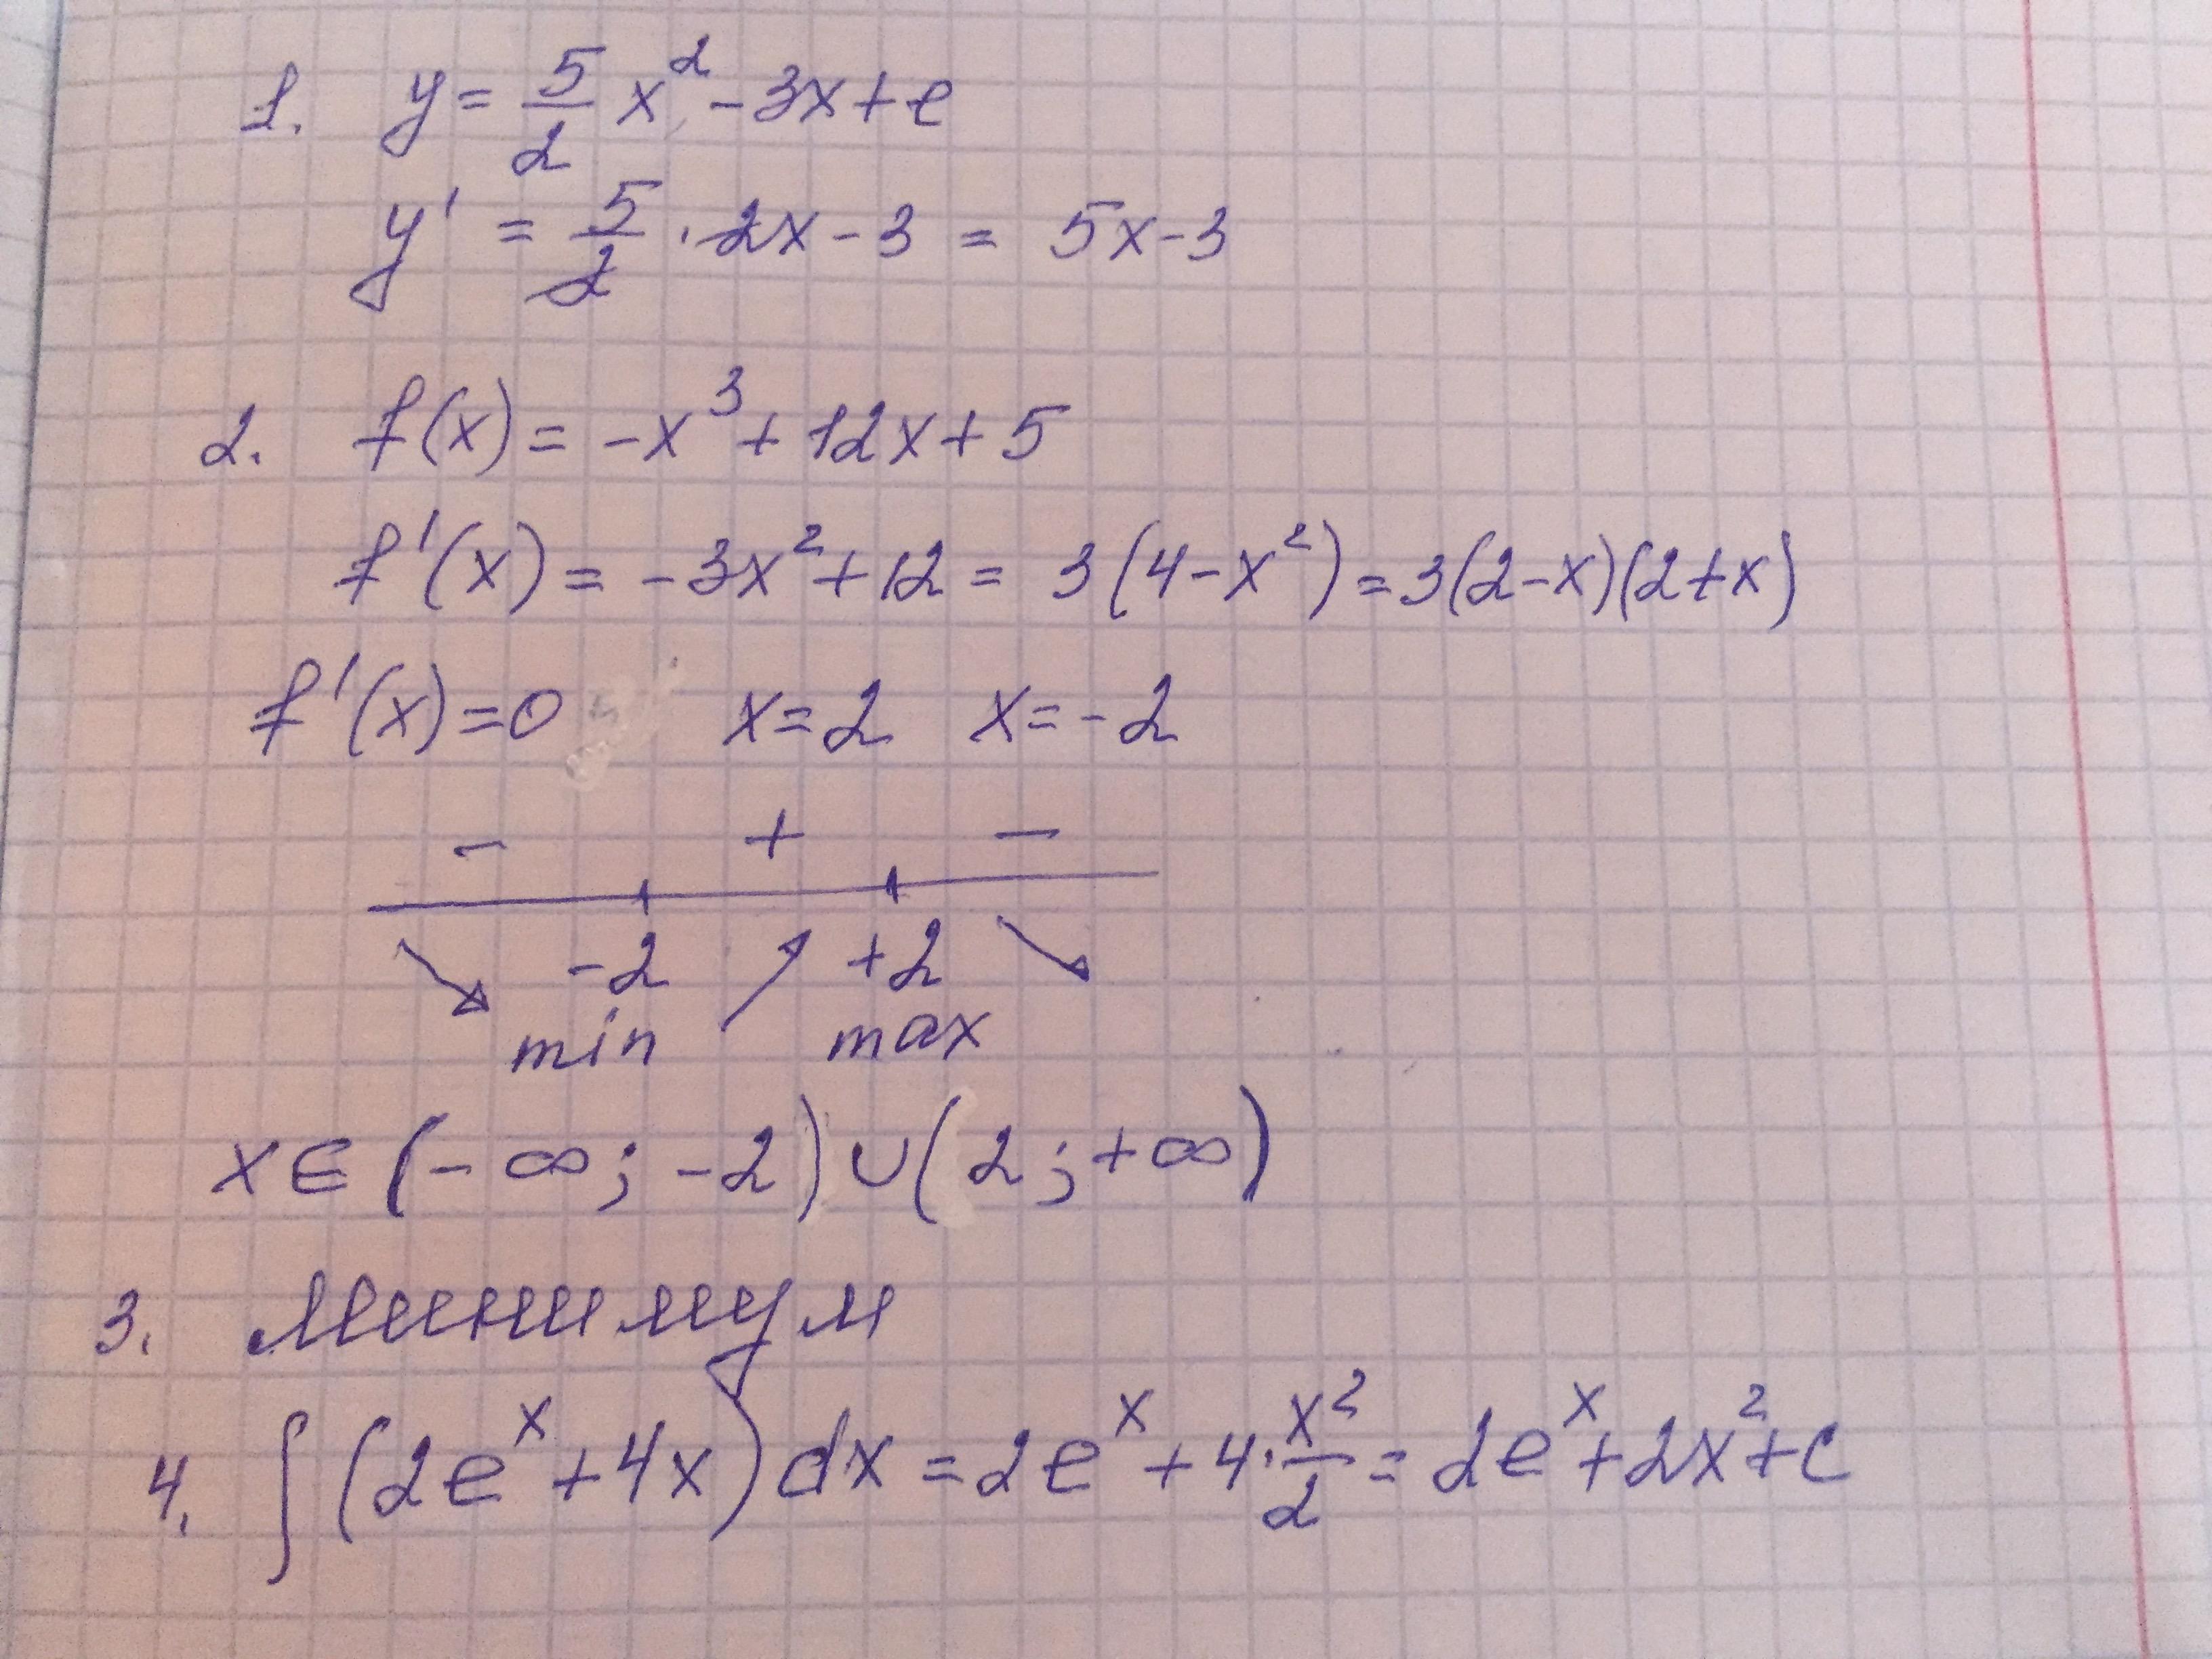 1. y = 5/2 x² - 3x + e
y' = 5/2 · 2x - 3 = 5x - 3
2. f(x) = -x³ + 12x + 5
f'(x) = -3x² + 12 = 3(4 - x²) = 3(2 - x)(2 + x)
f'(x) = 0 x = 2 x = -2
- + -
-2 +2
min max
x ∈ (-∞; -2) ∪ (2; +∞)
3. Минимум
4. ∫(2eˣ + 4x)dx = 2eˣ + 4 · x²/2 = 2eˣ + 2x² + c